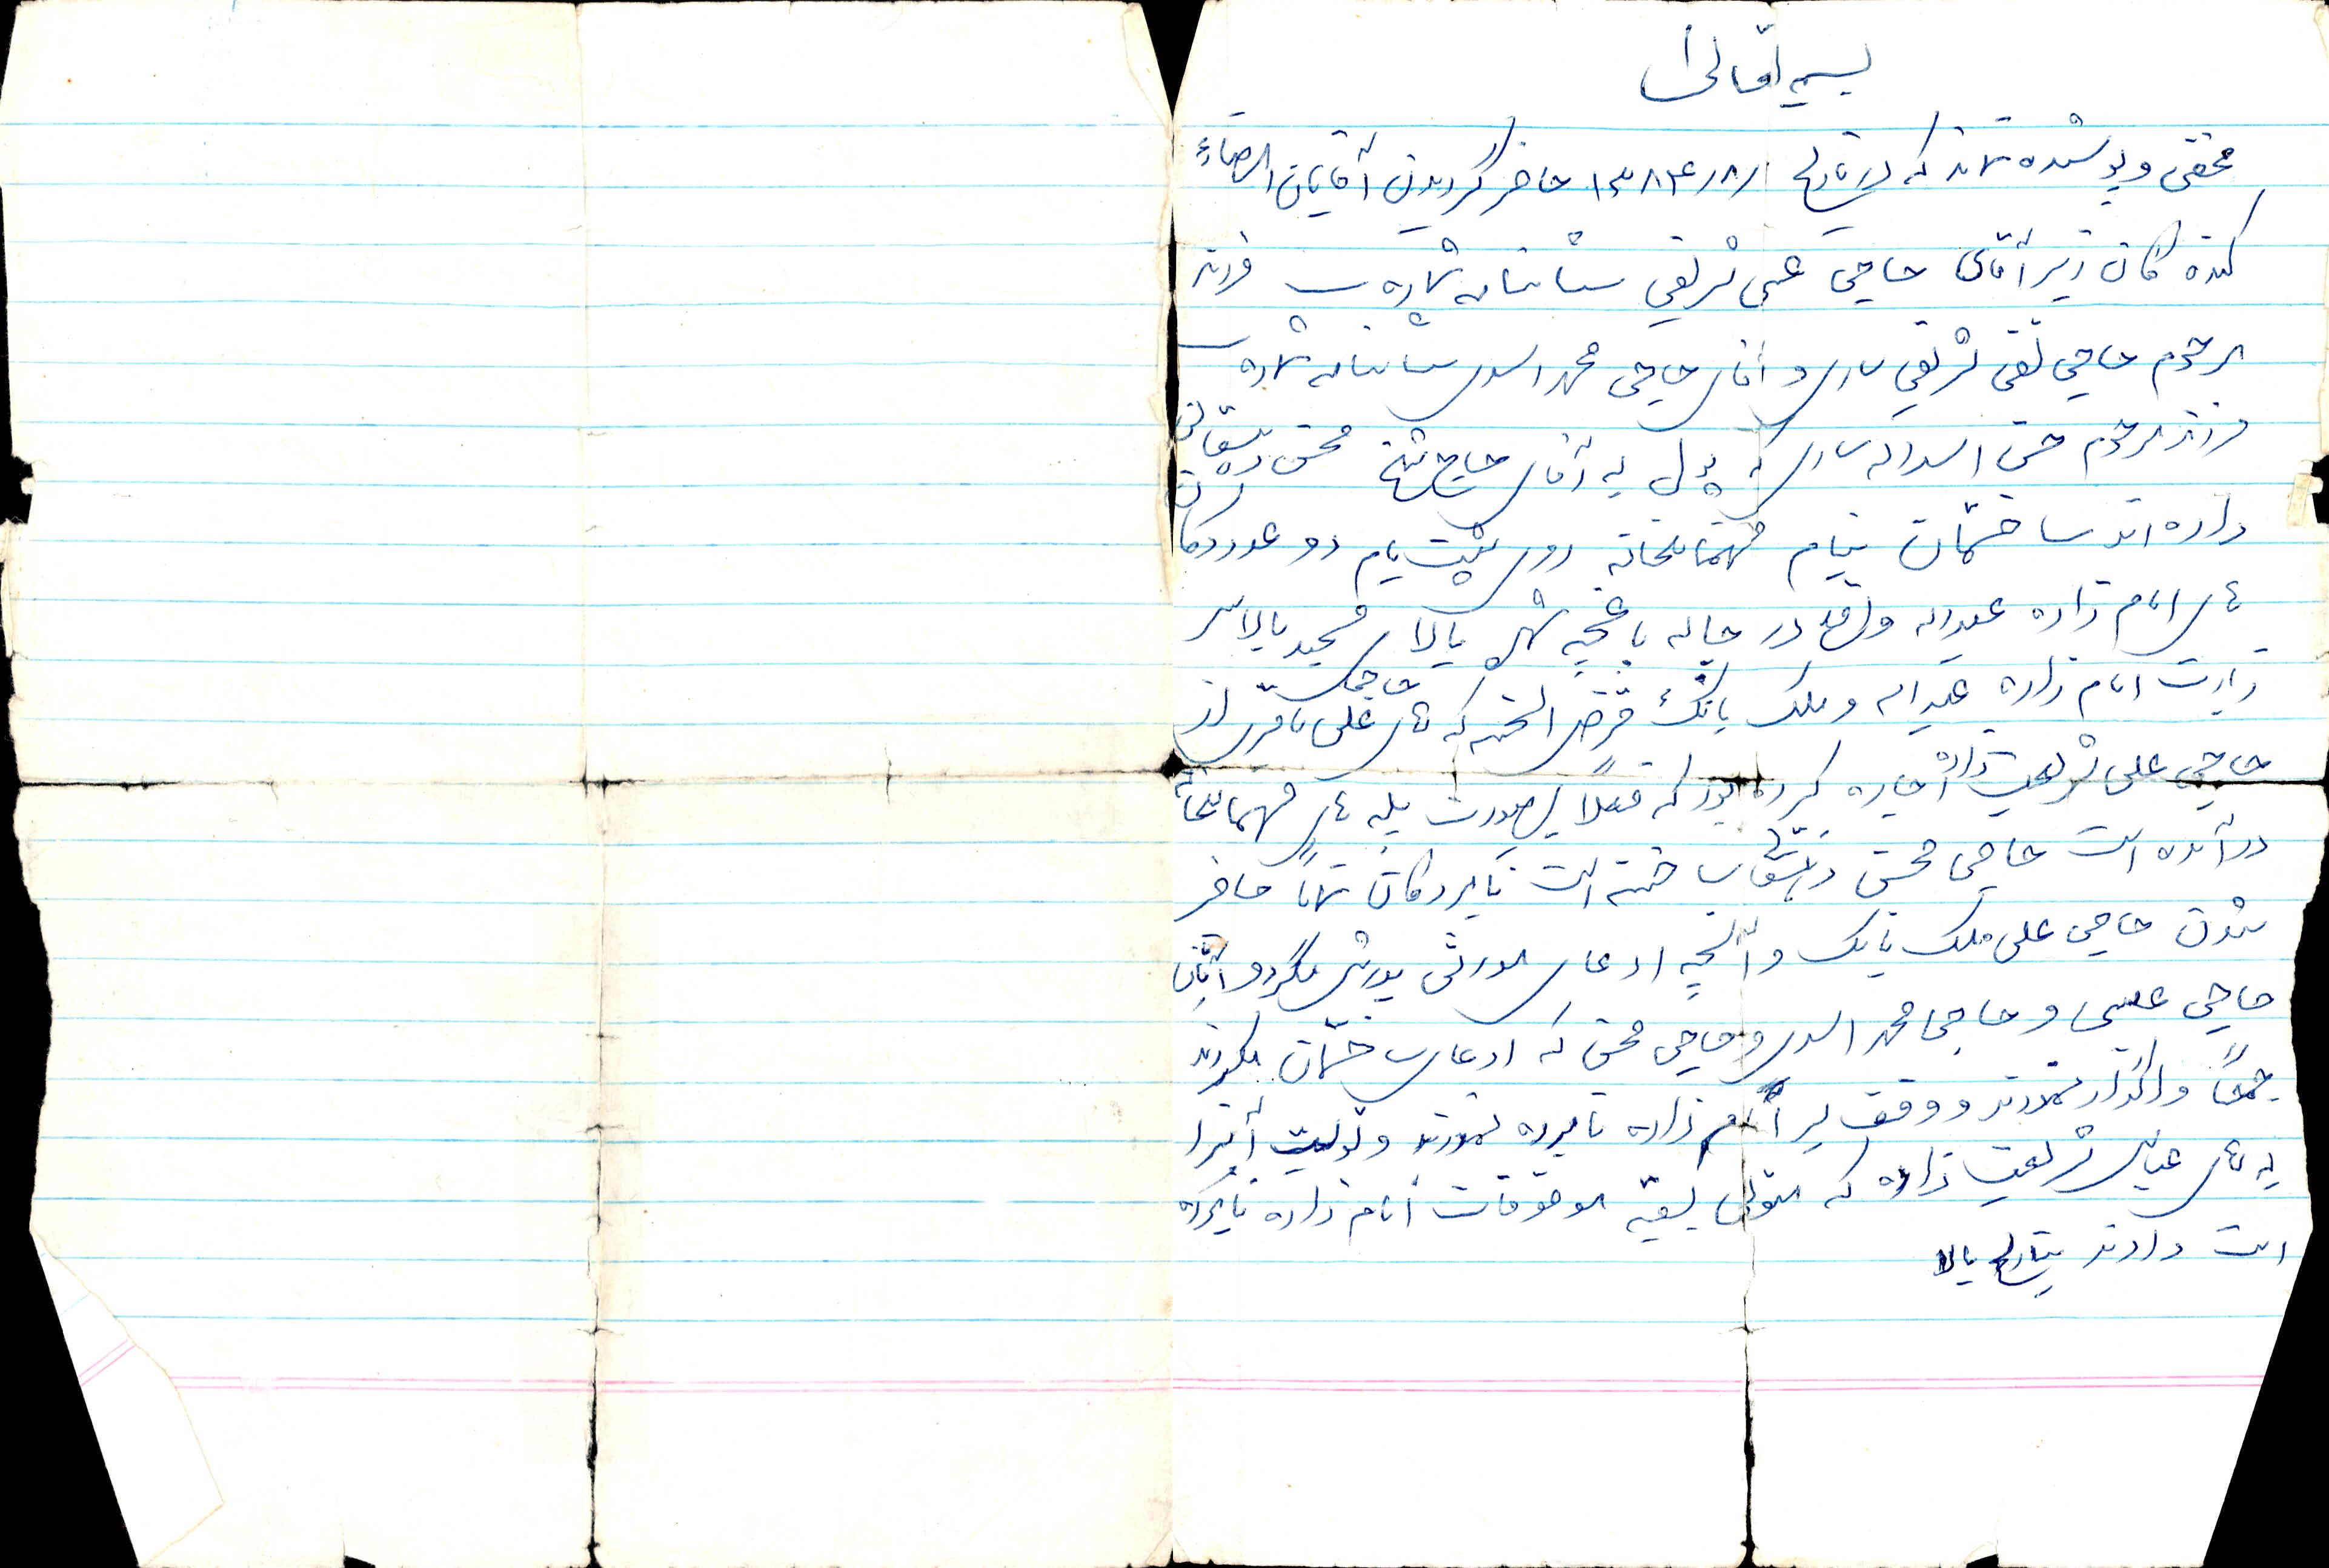 بسمه تعالی
مخفی و پوشیده نماند که در تاریخ ۱۳۸۳/۸/ حاضر گردیدن آقایان امضاء
کننده گان زیر آقای حاجی عیسی شریفی شناسنامه شماره فرزند
مرحوم حاجی تقی شریفی و آقای حاجی محمد اسدی شناسنامه شماره
فرزند مرحوم حسن اسداله که پول به آقای حاج شیخ محسن دهقانی
داده اند ساختمان بنام مهمانخانه روی پشت بام دو عدد دکان
های امام زاده عبداله واقع در چاله باغچه شهر بالا مسجد بالاسر
زیارت امام زاده عبداله و ملک بانک قرض الحسنه که علی از
حاجی علی شریعت زاده اجاره کرده بود که فعلا بصورت پله مهمانخانه
درآمده است حاجی محسن دهقانی ساخته است نامبردگان تماما حاضر
شدن حاجی علی ملک بانک و آنچه ادعای مورثی پدرش میکرد و آقایان
حاجی عیسی و حاجی محمد اسدی و حاجی محسن که ادعای ساختمان میکردند
جمعاً واگذار نمودند و وقف بر امام زاده نامبرده نمودند و تولیت آنرا
به آقای عباس شریعت زاده که متولی بقیه موقوفات امام زاده نامبرده
است دادند بتاریخ بالا